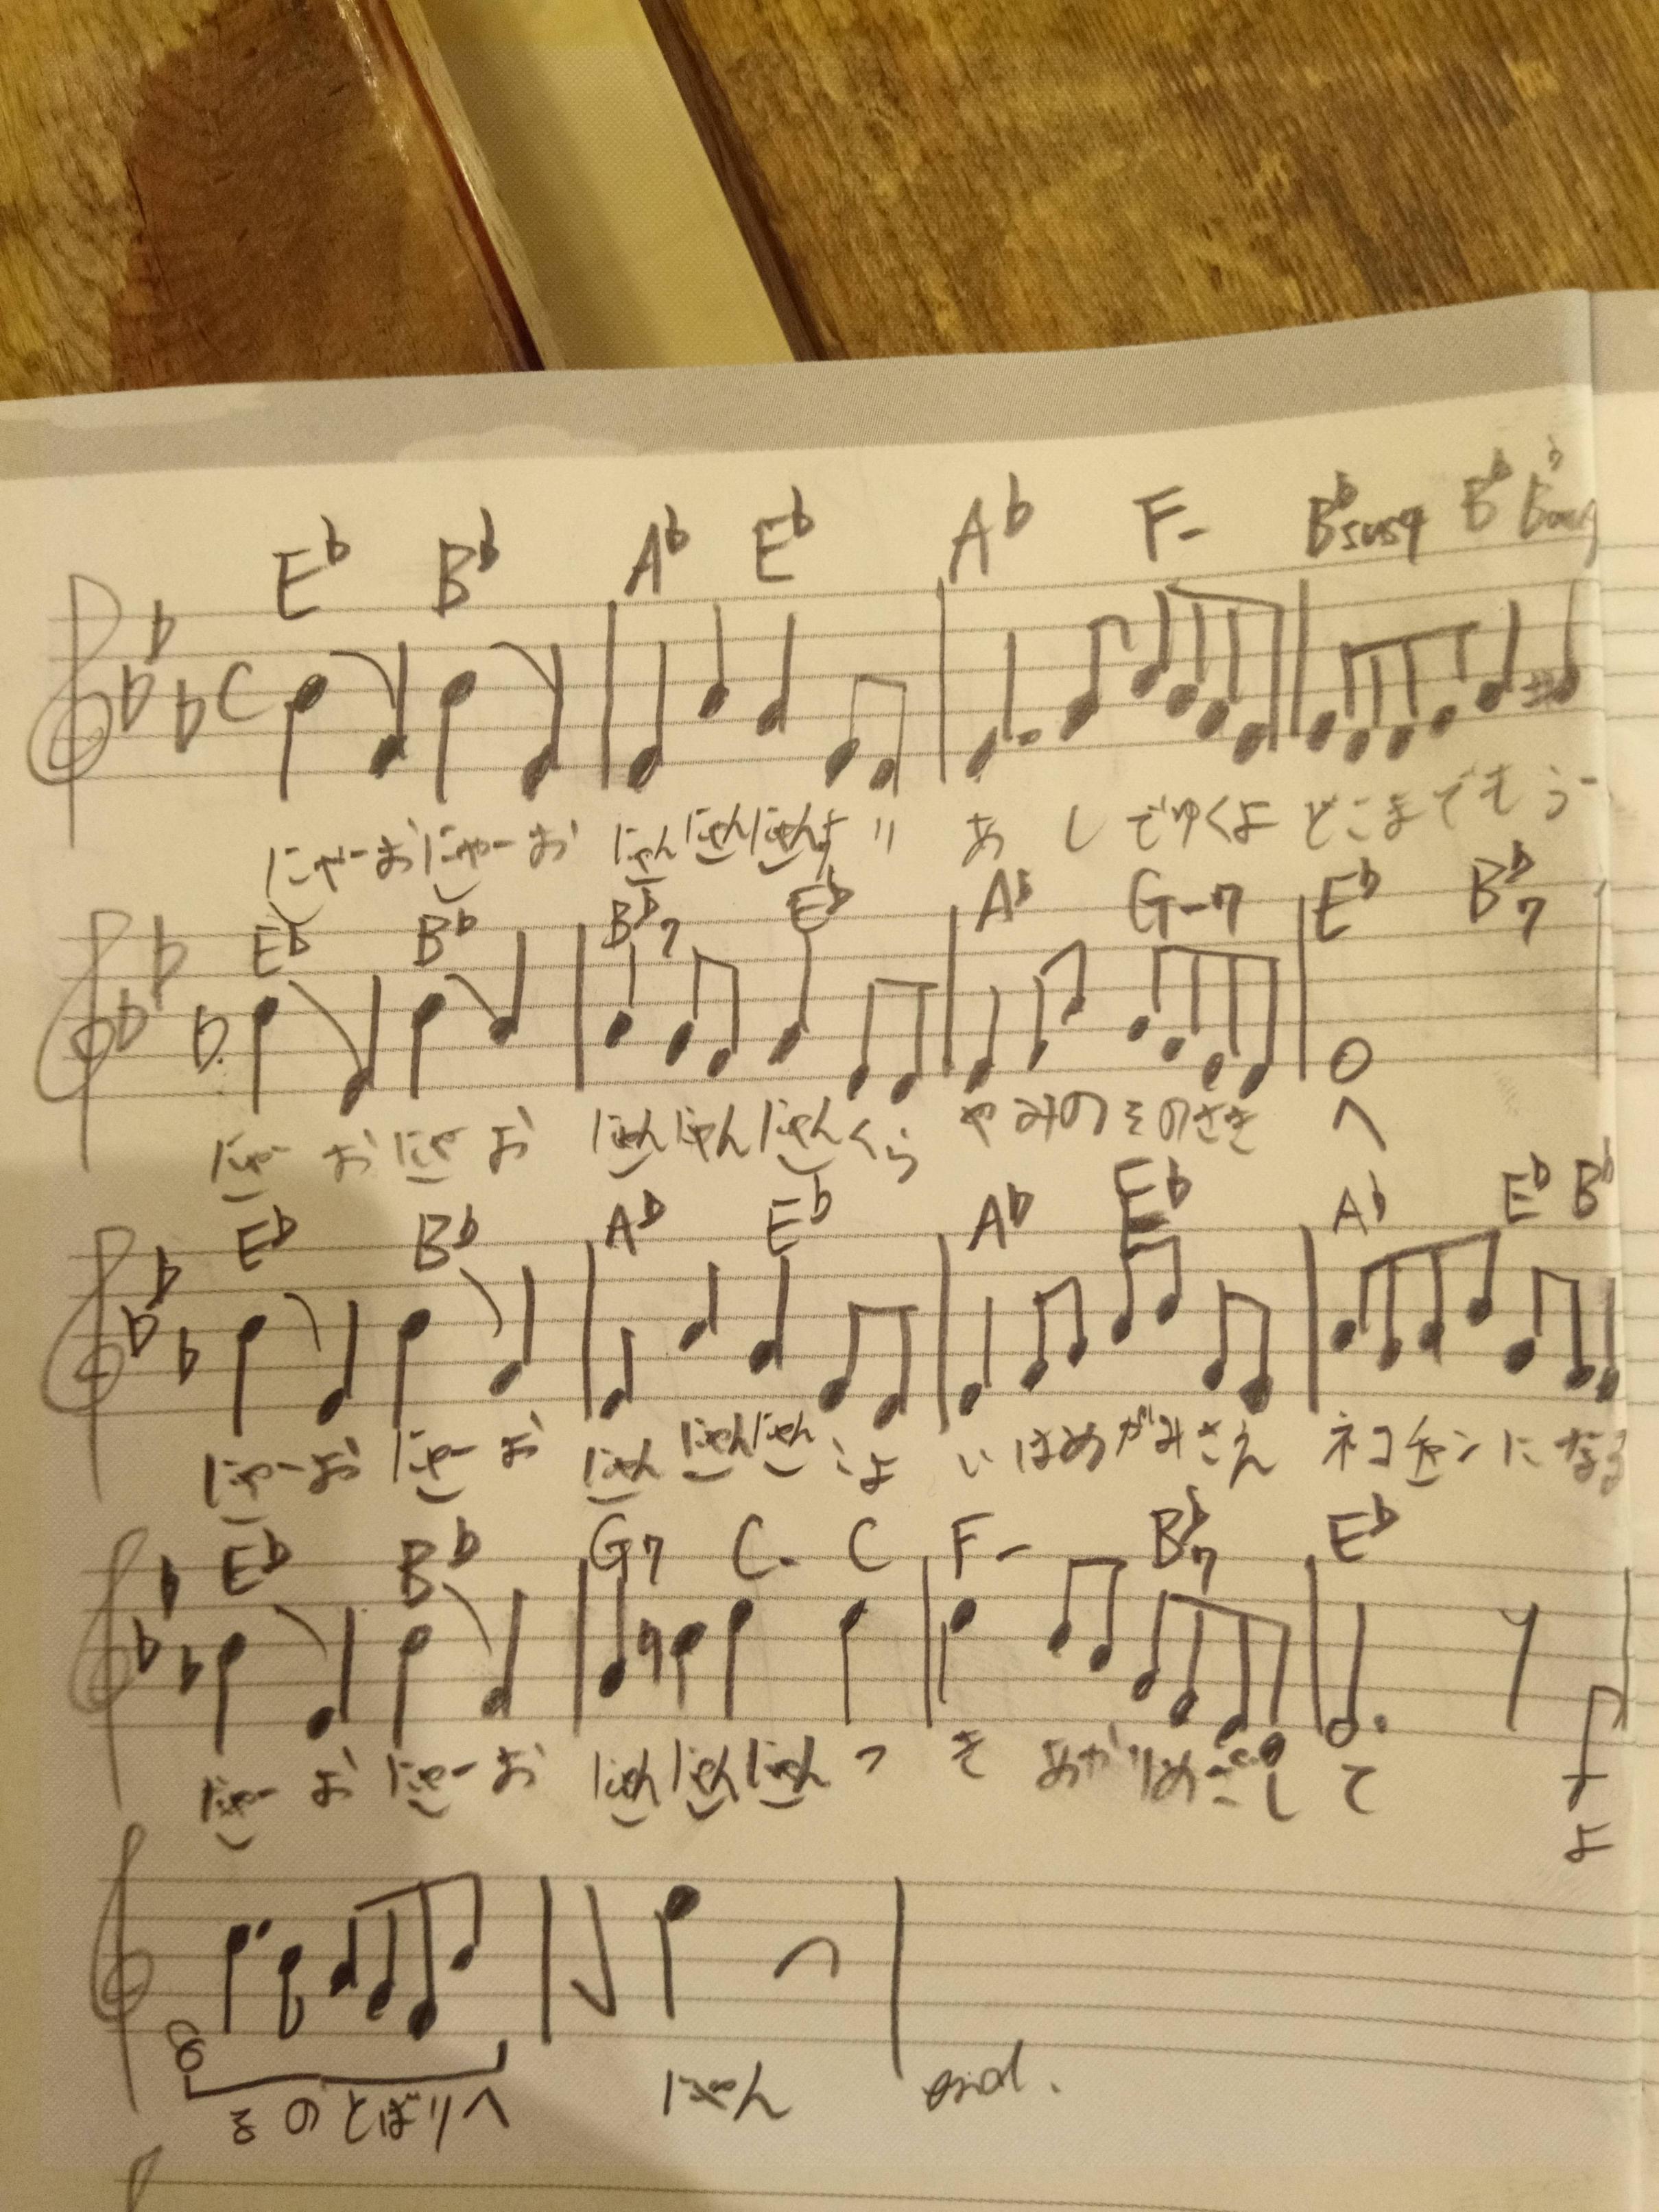 E♭ B♭ A♭ E♭ A♭ F- B♭sus4 B♭ B♭aug
C
にゃーおにゃーお にゃんにゃんにゃんより あしでゆくよ どこまでもうー
E♭ B♭ B♭7 E♭ A♭ G-7 E♭ B♭7
にゃーおにゃお にゃんにゃんにゃんくら やみのそのさき へ
E♭ B♭ A♭ E♭ A♭ E♭ A♭ E♭ B♭
にゃーおにゃーお にゃんにゃんにゃんこよ いはめがみさえ ネコチャンになる
E♭ B♭ G7 C- C F- B♭7 E♭
にゃーおにゃーお にゃんにゃんにゃんつ き あかりめざして
よ
るのとばりへ にゃん end.